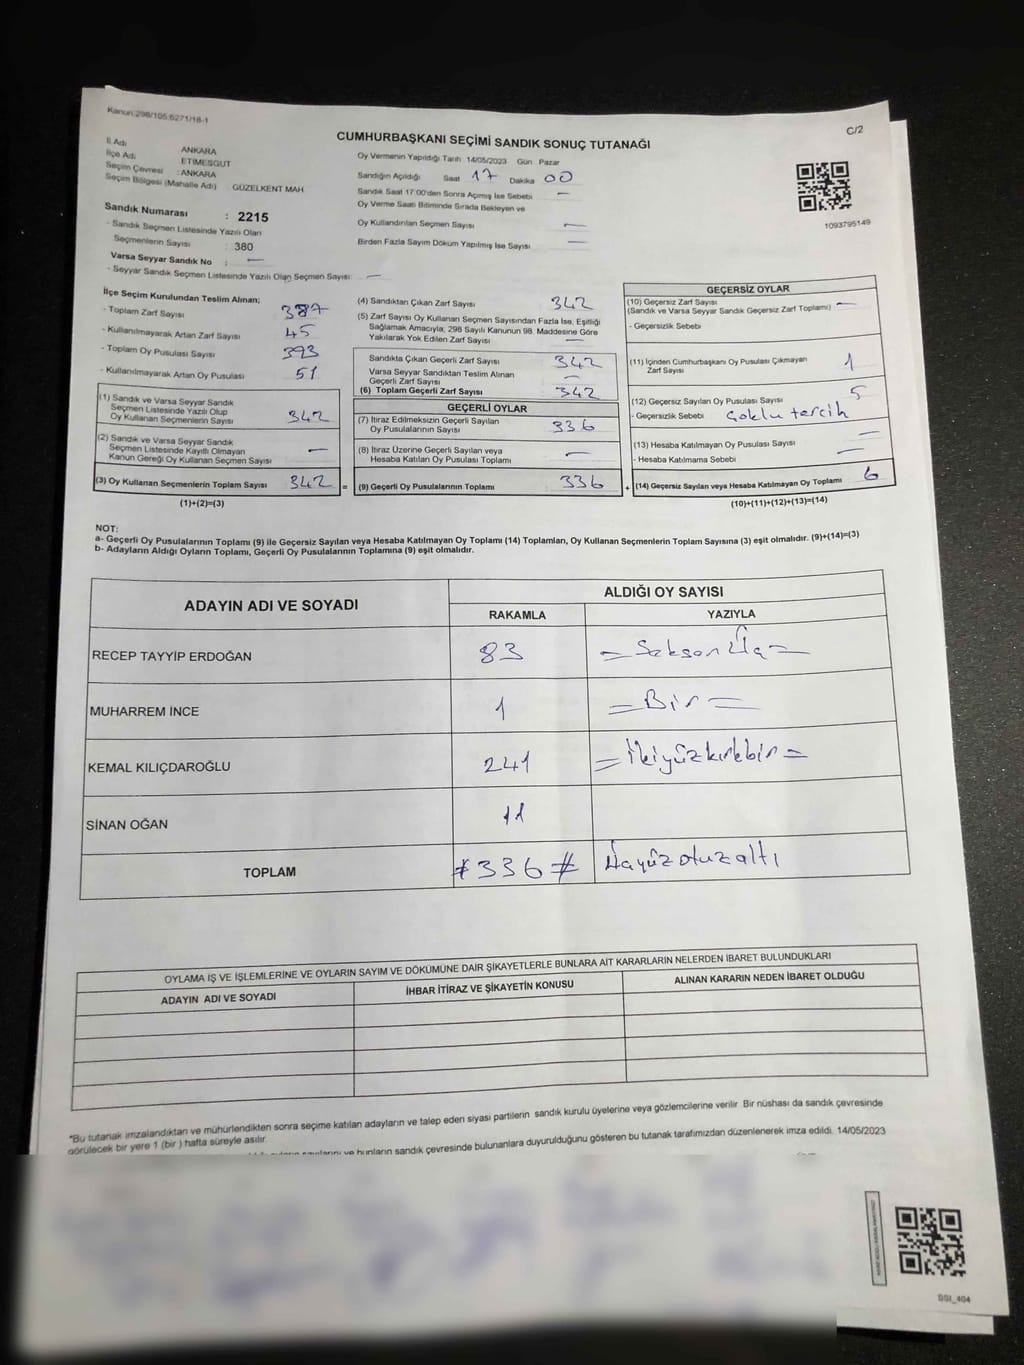 Kanun:298/105;6271/18-1
C/2
CUMHURBAŞKANI SEÇİMİ SANDIK SONUÇ TUTANAĞI
İl Adı ANKARA
İlçe Adı ETIMESGUT
Seçim Çevresi : ANKARA
Seçim Bölgesi (Mahalle Adı) GÜZELKENT MAH.
Oy Vermenin Yapıldığı Tarih 14/05/2023 Gün Pazar
Sandığın Açıldığı Saat 17 Dakika 00
Sandık Saat 17:00'den Sonra Açımış İse Sebebi —
Oy Verme Saati Bitiminde Sırada Bekleyen ve
Oy Kullandırılan Seçmen Sayısı —
Birden Fazla Sayım Döküm Yapılmış İse Sayısı —
1093795149
Sandık Numarası : 2215
- Sandık Seçmen Listesinde Yazılı Olan
Seçmenlerin Sayısı : 380
Varsa Seyyar Sandık No : —
- Seyyar Sandık Seçmen Listesinde Yazılı Olan Seçmen Sayısı: —
İlçe Seçim Kurulundan Teslim Alınan;
- Toplam Zarf Sayısı 387
- Kullanılmayarak Artan Zarf Sayısı 45
- Toplam Oy Pusulası Sayısı 393
- Kullanılmayarak Artan Oy Pusulası 51
(1) Sandık ve Varsa Seyyar Sandık
Seçmen Listesinde Yazılı Olup
Oy Kullanan Seçmenlerin Sayısı 342
(2) Sandık ve Varsa Seyyar Sandık
Seçmen Listesinde Kayıtlı Olmayan
Kanun Gereği Oy Kullanan Seçmen Sayısı —
(3) Oy Kullanan Seçmenlerin Toplam Sayısı 342 =
(1)+(2)=(3)
(4) Sandıktan Çıkan Zarf Sayısı 342
(5) Zarf Sayısı Oy Kullanan Seçmen Sayısından Fazla İse, Eşitliği
Sağlamak Amacıyla, 298 Sayılı Kanunun 98. Maddesine Göre
Yakılarak Yok Edilen Zarf Sayısı —
Sandıkta Çıkan Geçerli Zarf Sayısı 342
Varsa Seyyar Sandıktan Teslim Alınan
Geçerli Zarf Sayısı —
(6) Toplam Geçerli Zarf Sayısı 342
GEÇERLİ OYLAR
(7) İtiraz Edilmeksizin Geçerli Sayılan
Oy Pusulalarının Sayısı 336
(8) İtiraz Üzerine Geçerli Sayılan veya
Hesaba Katılan Oy Pusulası Toplamı —
(9) Geçerli Oy Pusulalarının Toplamı 336 +
GEÇERSİZ OYLAR
(10) Geçersiz Zarf Sayısı —
(Sandık ve Varsa Seyyar Sandık Geçersiz Zarf Toplamı)
- Geçersizlik Sebebi
(11) İçinden Cumhurbaşkanı Oy Pusulası Çıkmayan
Zarf Sayısı 1
(12) Geçersiz Sayılan Oy Pusulası Sayısı 5
- Geçersizlik Sebebi Çoklu tercih
(13) Hesaba Katılmayan Oy Pusulası Sayısı —
- Hesaba Katılmama Sebebi —
(14) Geçersiz Sayılan veya Hesaba Katılmayan Oy Toplamı 6
(10)+(11)+(12)+(13)=(14)
NOT:
a- Geçerli Oy Pusulalarının Toplamı (9) ile Geçersiz Sayılan veya Hesaba Katılmayan Oy Toplamı (14) Toplamları, Oy Kullanan Seçmenlerin Toplam Sayısına (3) eşit olmalıdır. (9)+(14)=(3)
b- Adayların Aldığı Oyların Toplamı, Geçerli Oy Pusulalarının Toplamına (9) eşit olmalıdır.
ADAYIN ADI VE SOYADI
ALDIĞI OY SAYISI
RAKAMLA YAZIYLA
RECEP TAYYİP ERDOĞAN 83 = Seksen Üç =
MUHARREM İNCE 1 = Bir =
KEMAL KILIÇDAROĞLU 241 = İkiyüzkırkbir =
SİNAN OĞAN 11
TOPLAM #336# Üçyüzotuzaltı
OYLAMA İŞ VE İŞLEMLERİNE VE OYLARIN SAYIM VE DÖKÜMÜNE DAİR ŞİKAYETLERLE BUNLARA AİT KARARLARIN NELERDEN İBARET BULUNDUKLARI
ADAYIN ADI VE SOYADI İHBAR İTİRAZ VE ŞİKAYETİN KONUSU ALINAN KARARIN NEDEN İBARET OLDUĞU
*Bu tutanak imzalandıktan ve mühürlendikten sonra seçime katılan adayların ve talep eden siyasi partilerin sandık kurulu üyelerine veya gözlemcilerine verilir. Bir nüshası da sandık çevresinde
görülecek bir yere 1 (bir) hafta süreyle asılır.
ve bunların sandık çevresinde bulunanlara duyurulduğunu gösteren bu tutanak tarafımızdan düzenlenerek imza edildi. 14/05/2023
SSI_404